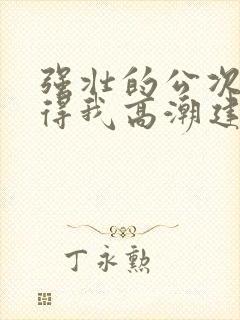 强壮的公次
得我高潮连
丁永勲